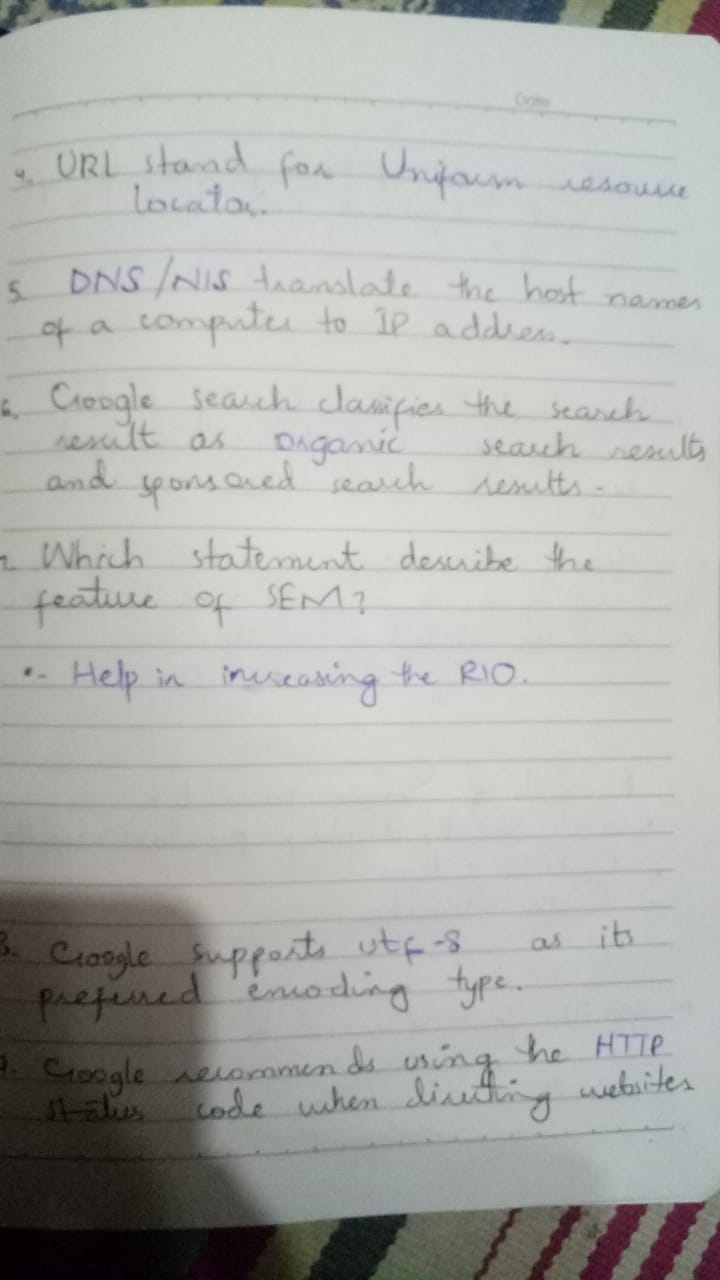 Date
4. URL stand for Uniform resource
locator.
5. DNS/NIS translate the host names
of a computer to IP address.
6. Google search classifies the search
result as organic search results
and sponsored search results.
7. Which statement describe the
feature of SEM?
•- Help in increasing the RIO.
8. Google supports utf-8 as its
preferred encoding type.
9. Google recommends using the HTTP
status code when directing websites